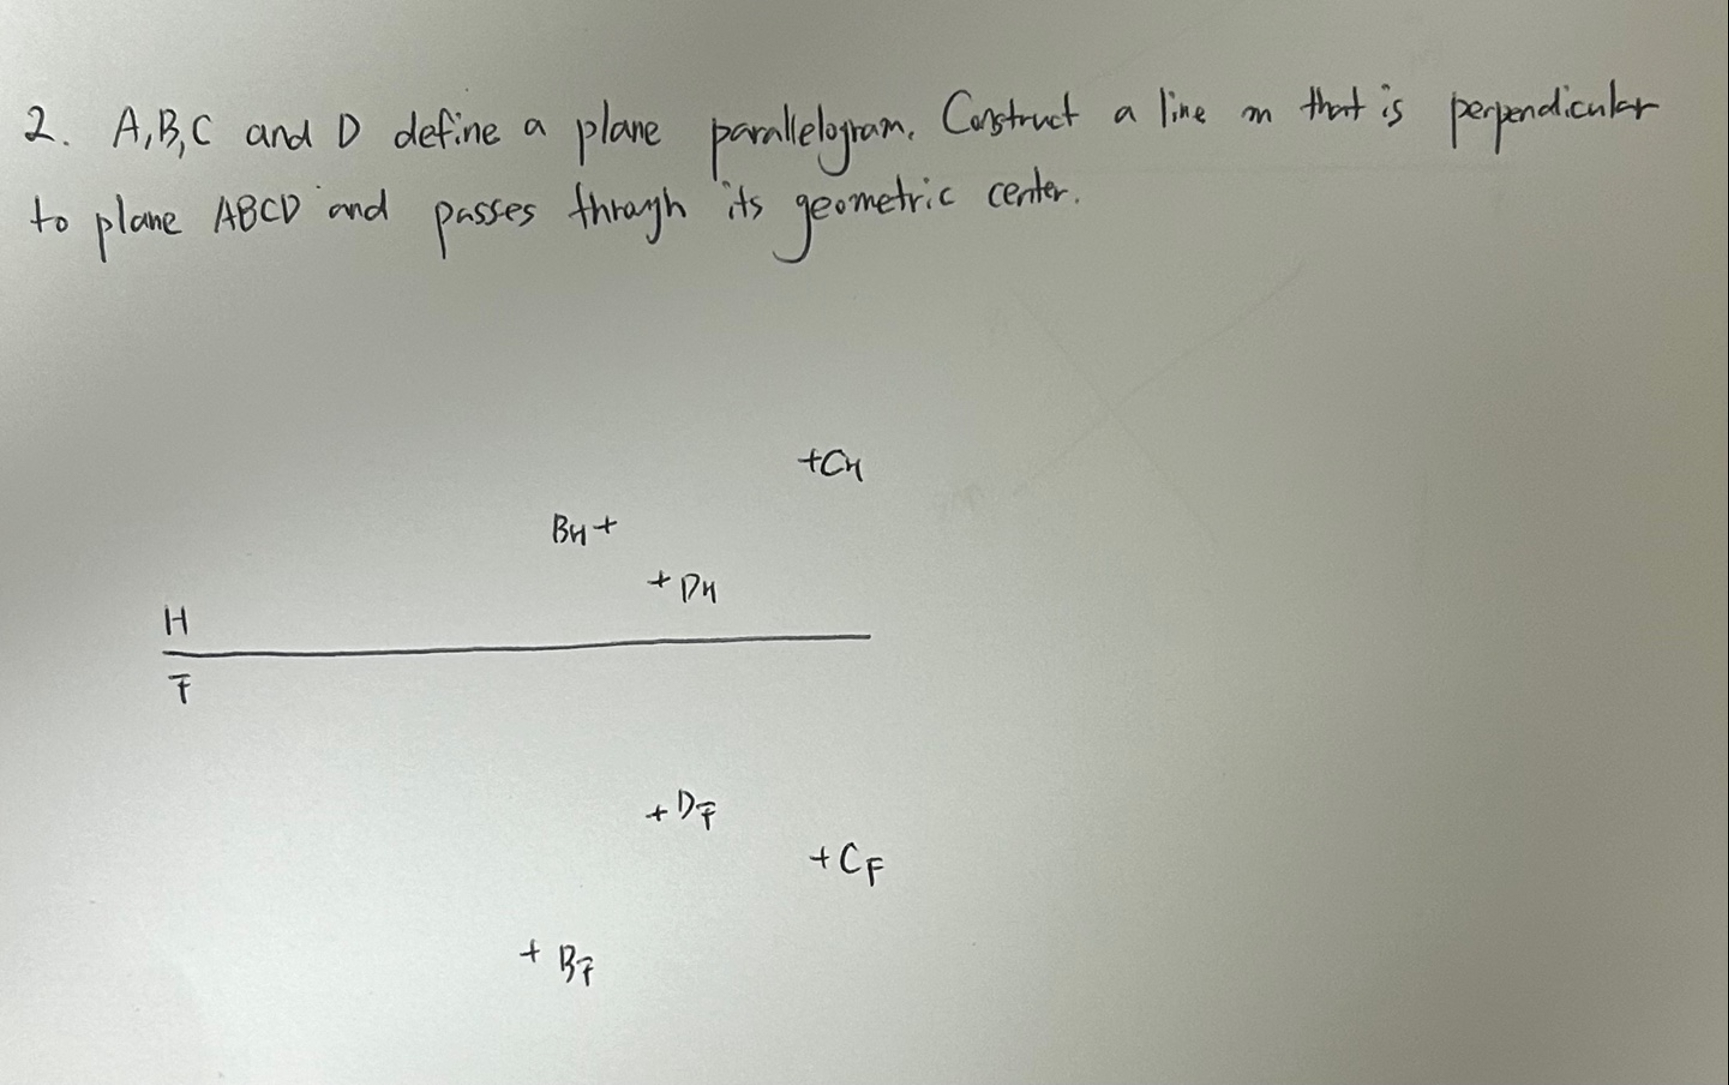 2. A,B,C and D define a plane parallelogram. Construct a line m that is perpendicular
to plane ABCD and passes through its geometric center.
+CH
BH+
+DH
H
F
+DF
+CF
+BF